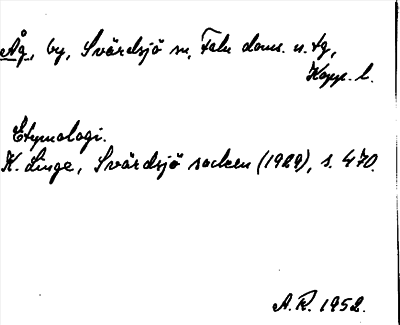 Åg, by, Svärdsjö sn, Falu doms. n. tg,
Kopp. l.
Etymologi.
K. Linge, Svärdsjö socken (1929), s. 470.
A. R. 1952.